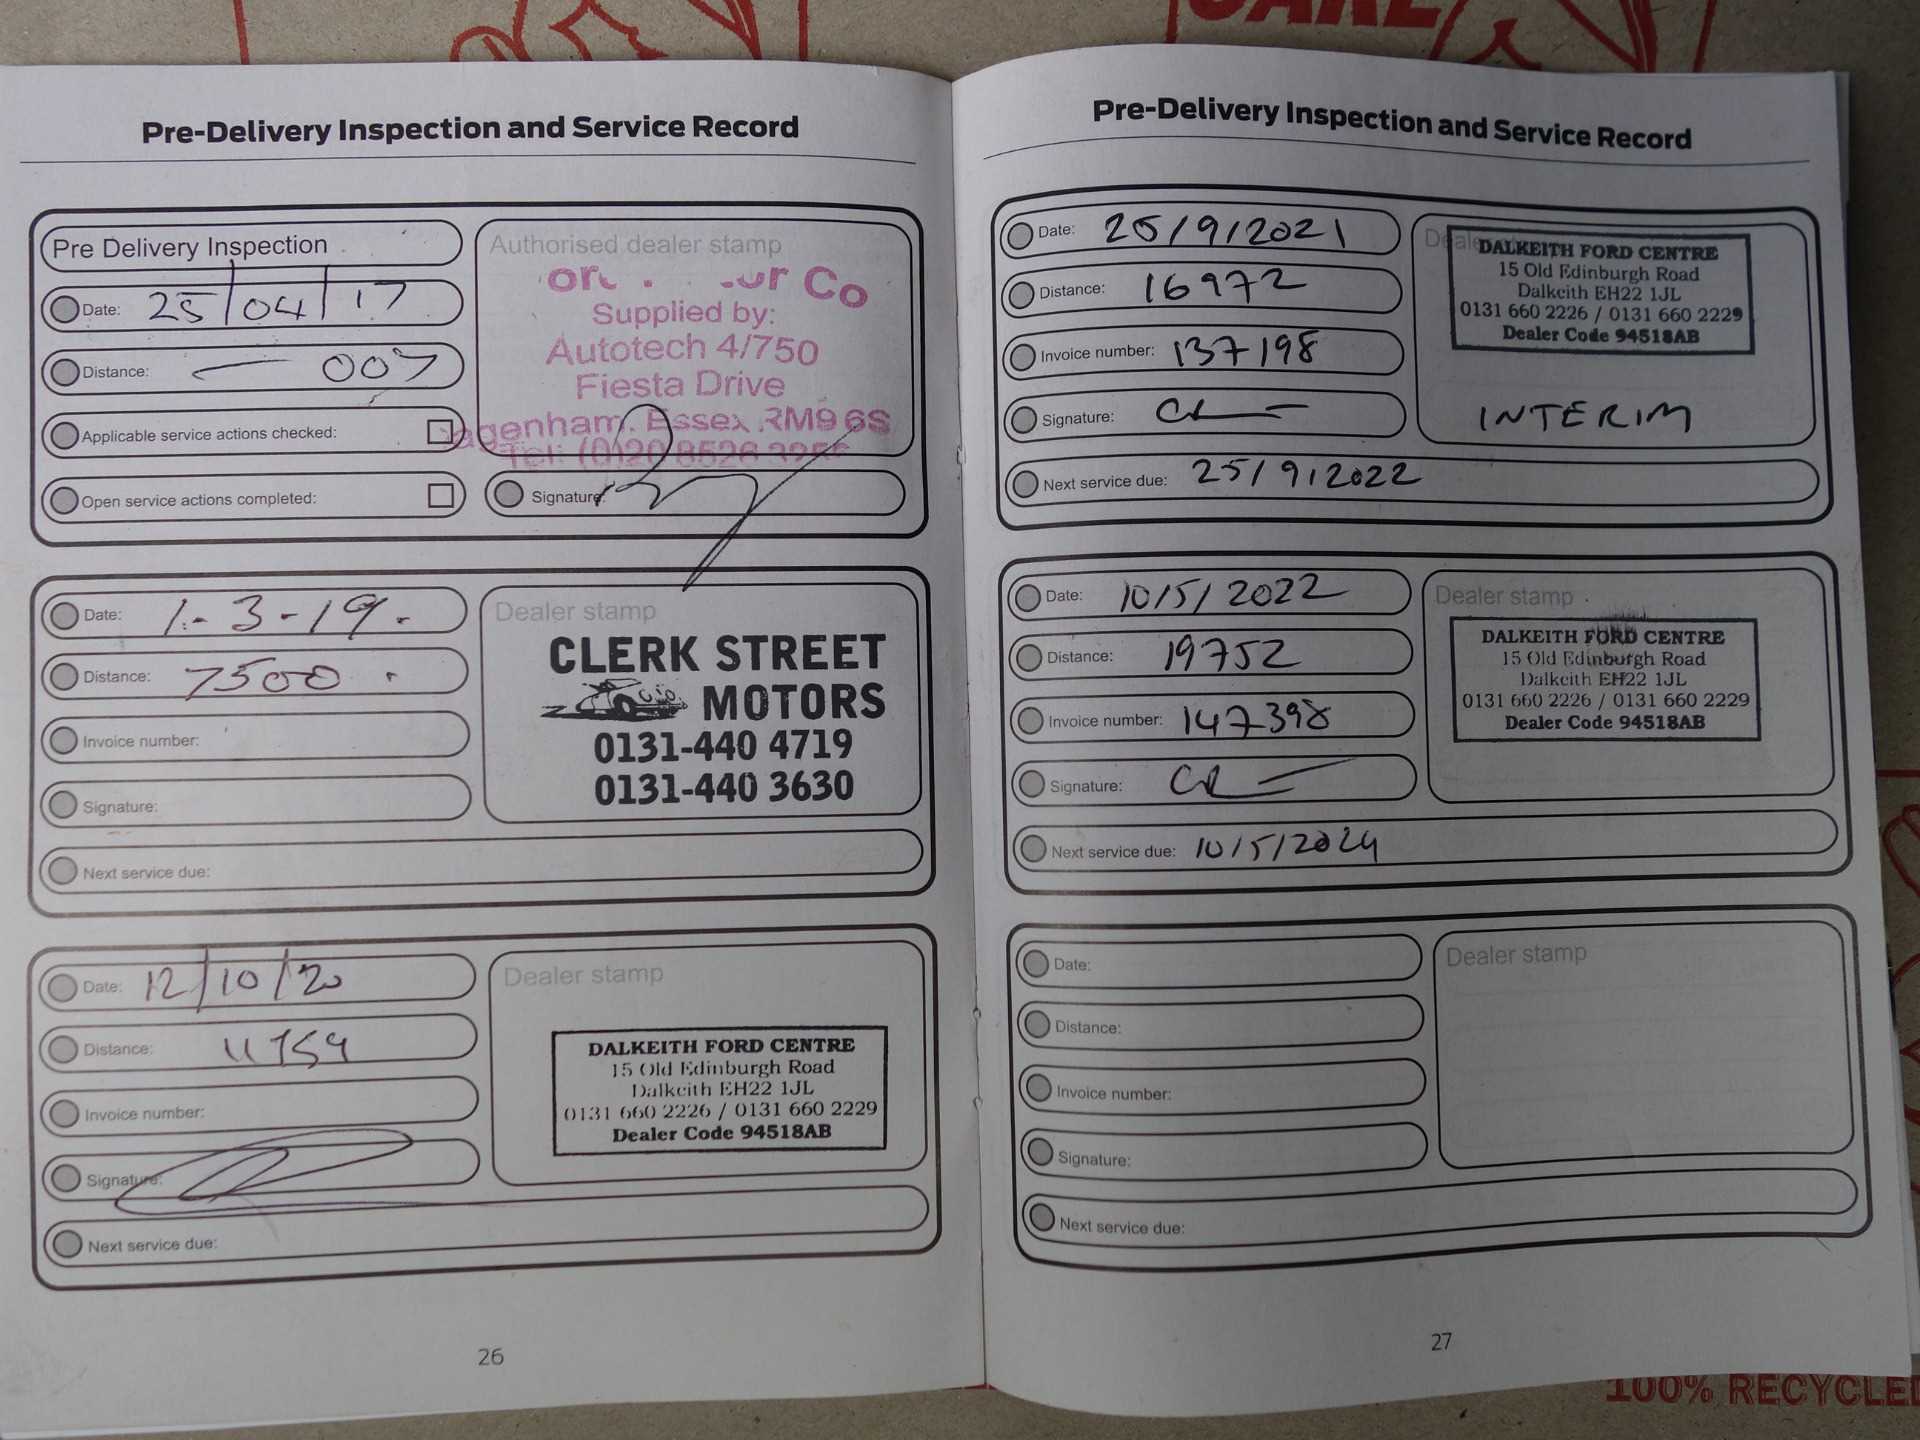 Pre-Delivery Inspection and Service Record
Pre Delivery Inspection
Date: 25/04/17
Distance: — 007
Applicable service actions checked:
Open service actions completed:
Authorised dealer stamp
Co
Supplied by:
Autotech 4/750
Fiesta Drive
Essex RM9 6S
Tel: (0)20 8526
Signature:
Date: 1-3-19.
Distance: 7500.
Invoice number:
Signature:
Next service due:
Dealer stamp
CLERK STREET
MOTORS
0131-440 4719
0131-440 3630
Date: 12/10/20
Distance: 11759
Invoice number:
Signature:
Next service due:
Dealer stamp
DALKEITH FORD CENTRE
15 Old Edinburgh Road
Dalkeith EH22 1JL
0131 660 2226 / 0131 660 2229
Dealer Code 94518AB
26
Pre-Delivery Inspection and Service Record
Date: 25/9/2021
Distance: 16972
Invoice number: 137198
Signature:
Next service due: 25/9/2022
DALKEITH FORD CENTRE
15 Old Edinburgh Road
Dalkeith EH22 1JL
0131 660 2226 / 0131 660 2229
Dealer Code 94518AB
INTERIM
Date: 10/5/2022
Distance: 19752
Invoice number: 147398
Signature:
Next service due: 10/5/2024
Dealer stamp
DALKEITH FORD CENTRE
15 Old Edinburgh Road
Dalkeith EH22 1JL
0131 660 2226 / 0131 660 2229
Dealer Code 94518AB
Date:
Distance:
Invoice number:
Signature:
Next service due:
Dealer stamp
27
100% RECYCLED